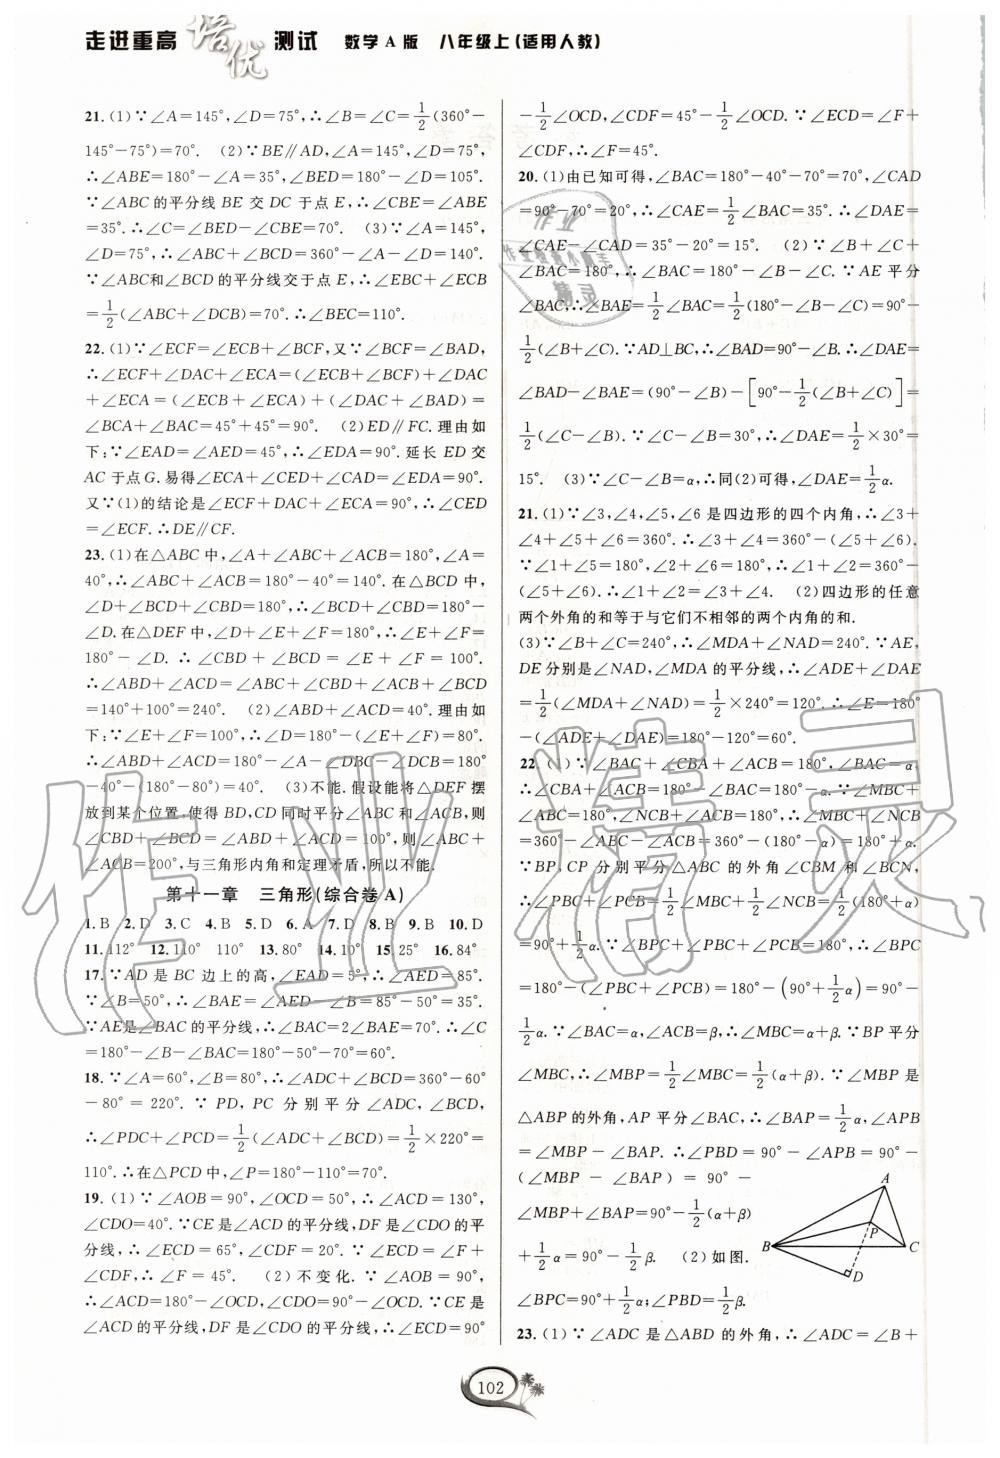 走进重高 培优 测试 数学A版 八年级上(适用人教)
21. (1)∵∠A=145°,∠D=75°,∴∠B=∠C=1/2(360°-
145°-75°)=70°. (2)∵BE∥AD,∠A=145°,∠D=75°,
∴∠ABE=180°-∠A=35°,∠BED=180°-∠D=105°.
∵∠ABC的平分线BE交DC于点E,∴∠CBE=∠ABE
=35°.∴∠C=∠BED-∠CBE=70°. (3)∵∠A=145°,
∠D=75°,∴∠ABC+∠BCD=360°-∠A-∠D=140°.
∵∠ABC和∠BCD的平分线交于点E,∴∠EBC+∠ECB
=1/2(∠ABC+∠DCB)=70°.∴∠BEC=110°.
22. (1)∵∠ECF=∠ECB+∠BCF,又∵∠BCF=∠BAD,
∴∠ECF+∠DAC+∠ECA=(∠ECB+∠BCF)+∠DAC
+∠ECA=(∠ECB+∠ECA)+(∠DAC+∠BAD)=
∠BCA+∠BAC=45°+45°=90°. (2)ED∥FC.理由如
下:∵∠EAD=∠AED=45°,∴∠EDA=90°.延长ED交
AC于点G.易得∠ECA+∠CED+∠CAD=∠EDA=90°.
又∵(1)的结论是∠ECF+DAC+∠ECA=90°,∴∠CED
=∠ECF.∴DE∥CF.
23. (1)在△ABC中,∠A+∠ABC+∠ACB=180°,∠A=
40°,∴∠ABC+∠ACB=180°-40°=140°.在△BCD中,
∠D+∠BCD+∠CBD=180°,∴∠BCD+∠CBD=180°-
∠D.在△DEF中,∠D+∠E+∠F=180°,∴∠E+∠F=
180°-∠D.∴∠CBD+∠BCD=∠E+∠F=100°.
∴∠ABD+∠ACD=∠ABC+∠CBD+∠ACB+∠BCD
=140°+100°=240°. (2)∠ABD+∠ACD=40°.理由如
下:∵∠E+∠F=100°,∴∠D=180°-(∠E+∠F)=80°.
∴∠ABD+∠ACD=180°-∠A-∠DBC-∠DCB=180°
-40°-(180°-80°)=40°. (3)不能.假设能将△DEF摆
放到某个位置,使得BD,CD同时平分∠ABC和∠ACB,则
∠CBD+∠BCD=∠ABD+∠ACD=100°,则∠ABC+
∠ACB=200°,与三角形内角和定理矛盾,所以不能.
第十一章 三角形(综合卷A)
1. B 2. D 3. C 4. B 5. D 6. A 7. D 8. B 9. B 10. D
11. 112° 12. 110° 110° 13. 80° 14. 10° 15. 25° 16. 84°
17. ∵AD是BC边上的高,∠EAD=5°,∴∠AED=85°.
∵∠B=50°,∴∠BAE=∠AED-∠B=85°-50°=35°.
∵AE是∠BAC的平分线,∴∠BAC=2∠BAE=70°.∴∠C
=180°-∠B-∠BAC=180°-50°-70°=60°.
18. ∵∠A=60°,∠B=80°,∴∠ADC+∠BCD=360°-60°
-80°=220°.∵PD,PC分别平分∠ADC,∠BCD,
∴∠PDC+∠PCD=1/2(∠ADC+∠BCD)=1/2×220°=
110°.∴在△PCD中,∠P=180°-110°=70°.
19. (1)∵∠AOB=90°,∠OCD=50°,∴∠ACD=130°,
∠CDO=40°.∵CE是∠ACD的平分线,DF是∠CDO的平
分线,∴∠ECD=65°,∠CDF=20°.∵∠ECD=∠F+
∠CDF,∴∠F=45°. (2)不变化.∵∠AOB=90°,
∴∠ACD=180°-∠OCD,∠CDO=90°-∠OCD.∵CE是
∠ACD的平分线,DF是∠CDO的平分线,∴∠ECD=90°
-1/2∠OCD,∠CDF=45°-1/2∠OCD.∵∠ECD=∠F+
∠CDF,∴∠F=45°.
20. (1)由已知可得,∠BAC=180°-40°-70°=70°,∠CAD
=90°-70°=20°,∴∠CAE=1/2∠BAC=35°.∴∠DAE=
∠CAE-∠CAD=35°-20°=15°. (2)∵∠B+∠C+
∠BAC=180°,∴∠BAC=180°-∠B-∠C.∵AE平分
∠BAC,∴∠BAE=1/2∠BAC=1/2(180°-∠B-∠C)=90°-
1/2(∠B+∠C).∵AD⊥BC,∴∠BAD=90°-∠B.∴∠DAE=
∠BAD-∠BAE=(90°-∠B)-[90°-1/2(∠B+∠C)]=
1/2(∠C-∠B).∵∠C-∠B=30°,∴∠DAE=1/2×30°=
15°. (3)∵∠C-∠B=α,∴同(2)可得,∠DAE=1/2α.
21. (1)∵∠3,∠4,∠5,∠6是四边形的四个内角,∴∠3+
∠4+∠5+∠6=360°.∴∠3+∠4=360°-(∠5+∠6).
∵∠1+∠5=180°,∠2+∠6=180°,∴∠1+∠2=360°-
(∠5+∠6).∴∠1+∠2=∠3+∠4. (2)四边形的任意
两个外角的和等于与它们不相邻的两个内角的和.
(3)∵∠B+∠C=240°,∴∠MDA+∠NAD=240°.∵AE,
DE分别是∠NAD,∠MDA的平分线,∴∠ADE+∠DAE
=1/2(∠MDA+∠NAD)=1/2×240°=120°.∴∠E=180°
-(∠ADE+∠DAE)=180°-120°=60°.
22. (1)∵∠BAC+∠CBA+∠ACB=180°,∠BAC=α,
∴∠CBA+∠ACB=180°-∠BAC=180°-α.∵∠MBC+
∠ABC=180°,∠NCB+∠ACB=180°,∴∠MBC+∠NCB
=360°-∠ABC-∠ACB=360°-(180°-α)=180°+α.
∵BP,CP分别平分△ABC的外角∠CBM和∠BCN,
∴∠PBC+∠PCB=1/2∠MBC+1/2∠NCB=1/2(180°+α)
=90°+1/2α.∵∠BPC+∠PBC+∠PCB=180°,∴∠BPC
=180°-(∠PBC+∠PCB)=180°-(90°+1/2α)=90°-
1/2α.∵∠BAC=α,∠ACB=β,∴∠MBC=α+β.∵BP平分
∠MBC,∴∠MBP=1/2∠MBC=1/2(α+β).∵∠MBP是
△ABP的外角,AP平分∠BAC,∴∠BAP=1/2α,∠APB
=∠MBP-∠BAP.∴∠PBD=90°-∠APB=90°-
(∠MBP-∠BAP)=90°-
∠MBP+∠BAP=90°-1/2(α+β)
+1/2α=90°-1/2β. (2)如图.
∠BPC=90°+1/2α,∠PBD=1/2β.
A
B
P
C
D
23. (1)∵∠ADC是△ABD的外角,∴∠ADC=∠B+
102
作业精灵